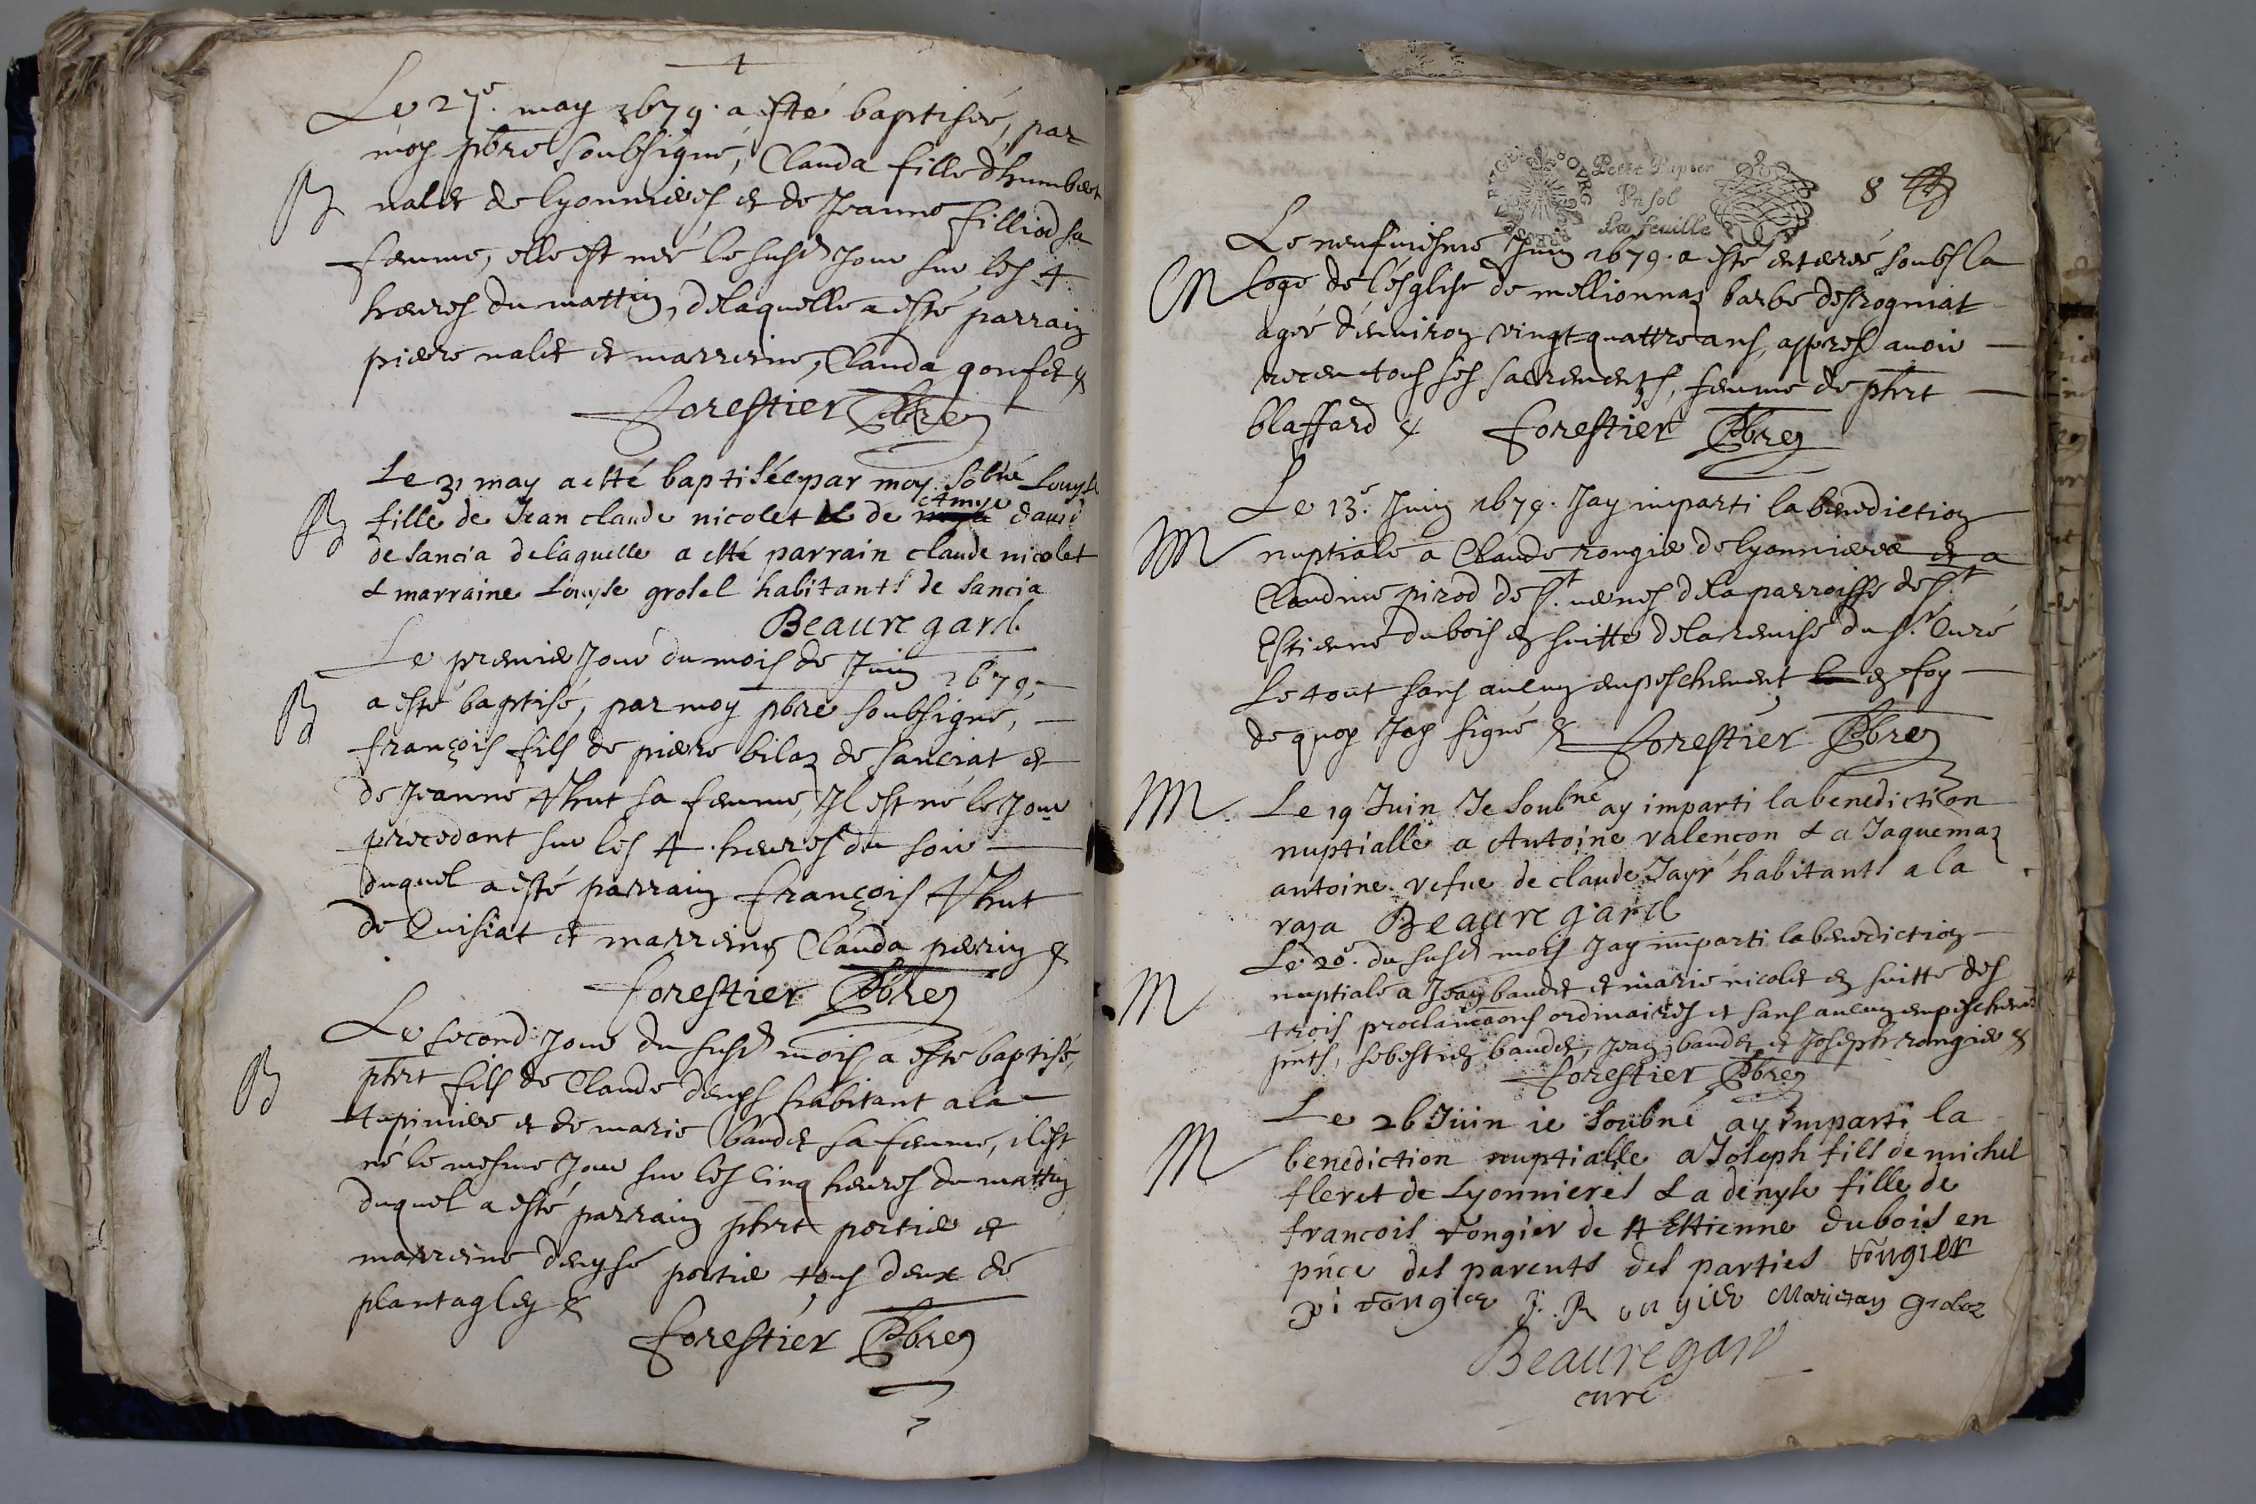 Le 27e. may 1679. a esté baptisée, par
moy pbre soubsigné, Clauda fille d'humbert
nalet de lyonnieres et de Jeanne filliod sa
femme, elle est née le susd jour sur les 4
heures du mattin, de laquelle a esté parrain
pierre nalet et marreine, Clauda gonfet &
Forestier Pbre
Le 31 may a etté baptisée par moy sobné Louyse
fille de Jean claude nicolet & de etmye david
de sancia de laquelle a etté parrain claude nicolet
& marraine Louyse grosel habitants de sancia
Beauregard
Le premier Jour du mois de Juin 1679,
B a esté baptisé, par moy pbre soubsigné,
françois fils de pierre bilaz de sanciat et
de Jeanne Thut sa femme, Il est né le Jour
precedant sur les 4 heures du soir
duquel a esté parrain françois Thut
de Cuisiat et marreine Clauda perrin &
Forestier Pbre
Le second Jour du susd mois a esté baptisé,
B phrt fils de Claude denys habitant a la
tupiniere et de marie baudet sa femme, il est
né le mesme Jour sur les cinq heures du mattin
duquel a esté parrain phrt portier et
marreine denyse portier tous deux de
plantaglay &
Forestier Pbre
Petit Papier
Un sol
La feuille
8
Le neufviesme Juin 1679. a esté enterrée soubs la
M loge de l'esglise de mellionnaz barbe desrogniat
agée d'environ vingt-quattre ans, appres avoir
receu tous ses sacrements, femme de phrt
blaffard & Forestier Pbre
Le 13e. Juin 1679. Jay imparti la benediction
M nuptiale a Claude rongier de lyonnieres et a
Claudine pirod de st. nenes de la parroisse de st
Estienne du bois en suitte de la remise du sr. Curé
Le tout sans aucun enpeschement en foy
de quoy Jay signé & Forestier Pbre
M Le 19 Juin Je soubné ay imparti la benediction
nuptialle a Antoine valençon & a Jaquemaz
antoine vefue de claude Jayr habitants a la
raza Beauregard
Le 20e. du susd mois Jay imparti la benediction
M nuptiale a Jean baudet et marie nicolet en suitte des
trois proclamaons ordinaires et sans aucun enpeschemt
pnts, sebestien baudet, Jean baudet et Joseph rongier &
Forestier Pbre
Le 26 Juin ie soubné ay imparti la
M benediction nuptialle a Joseph fils de michel
fleret de Lyonnieres & a denyse fille de
francois rongier de st Ettienne du bois en
pnce des parents des parties rongier
pi rongier J. Rongier Mariejan grolez
Beauregard
curé